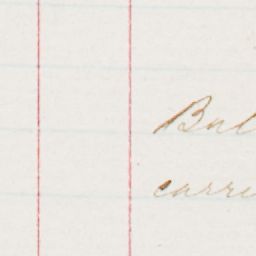 Bal
carri